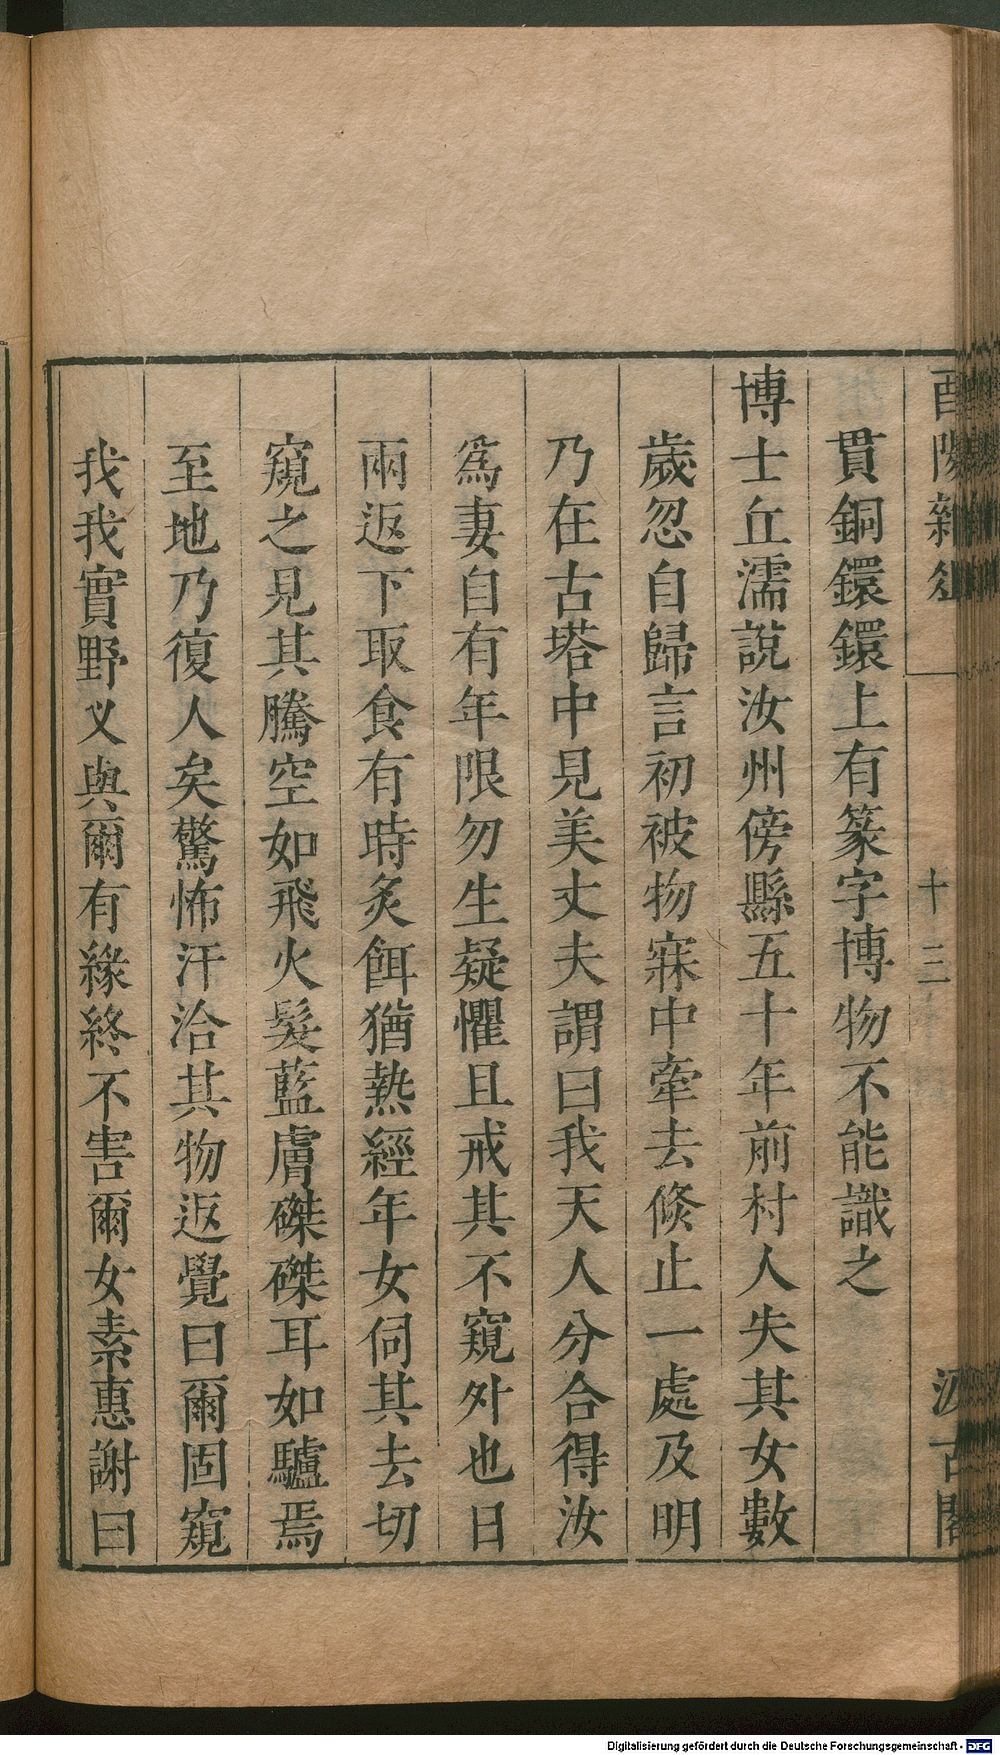 酉陽雜俎
十三
汲古閣
貫銅鐶鐶上有篆字博物不能識之
博士丘濡說汝州傍縣五十年前村人失其女數
歲忽自歸言初被物寐中牽去倐止一處及明
乃在古塔中見美丈夫謂曰我天人分合得汝
爲妻自有年限勿生疑懼且戒其不窺外也日
兩返下取食有時炙餌猶熱經年女伺其去切
窺之見其騰空如飛火髮藍膚磔磔耳如驢焉
至地乃復人矣驚怖汗洽其物返覺曰爾固窺
我我實野叉與爾有緣終不害爾女素惠謝曰
Digitalisierung gefördert durch die Deutsche Forschungsgemeinschaft - DFG